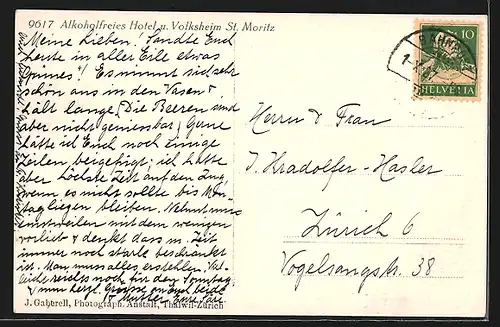 9617 Alkoholfreies Hotel u. Volksheim St. Moritz
Meine Lieben! Sandte Euch
heute in aller Eile etwas
"Grünes"! Es nimmt sich sehr
schön aus in den Vasen &
hält lange. (Die Beeren sind
aber nicht geniessbar) Gerne
hätte ich Euch noch einige
Zeilen beigefügt; ich hatte
aber höchste Zeit auf den Zug,
wenn es nicht sollte bis Mon-
tag liegen bleiben. Nehmt nun
einstweilen mit dem wenigen
vorlieb & denkt dass m. Zeit
immer noch stark beschränkt
ist. Man muss alles erstehlen. Viel-
leicht noch für den Sonntag
& nun herzl. Grüsse an Euch beide
Mutter, Eure
J. Gaberell, Photograph. Anstalt, Thalwil-Zürich
10
HELVETIA
Herrn & Frau
J. Hradolfer-Hasler
Zürich 6
Vogelsangstr. 38